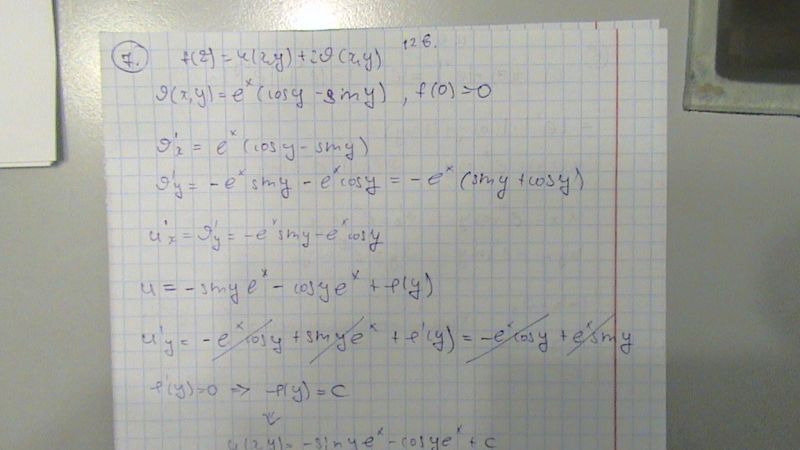 12в.
7. f(z)=u(x,y)+iϑ(x,y)
ϑ(x,y)=e^x(cosy-siny), f(0)=0
ϑ'x = e^x(cosy-siny)
ϑ'y = -e^x siny - e^x cosy = -e^x (siny+cosy)
u'x = ϑ'y = -e^x siny - e^x cosy
u = -siny e^x - cosy e^x + φ(y)
u'y = -e^x cosy + siny e^x + φ'(y) = -e^x cosy + e^x siny
φ'(y)=0 => φ(y)=C
⇓
u(x,y) = -siny e^x - cosy e^x + C